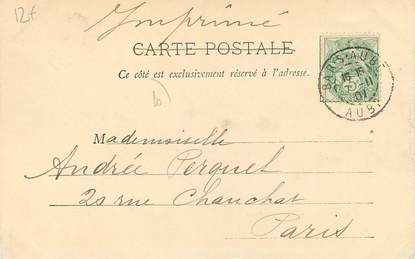 12€
Imprimé
CARTE POSTALE
Ce côté est exclusivement réservé à l'adresse.
BAR-S-AUBE
AUBE
Mademoiselle
Andrée Perquel
20 rue Chauchat
Paris